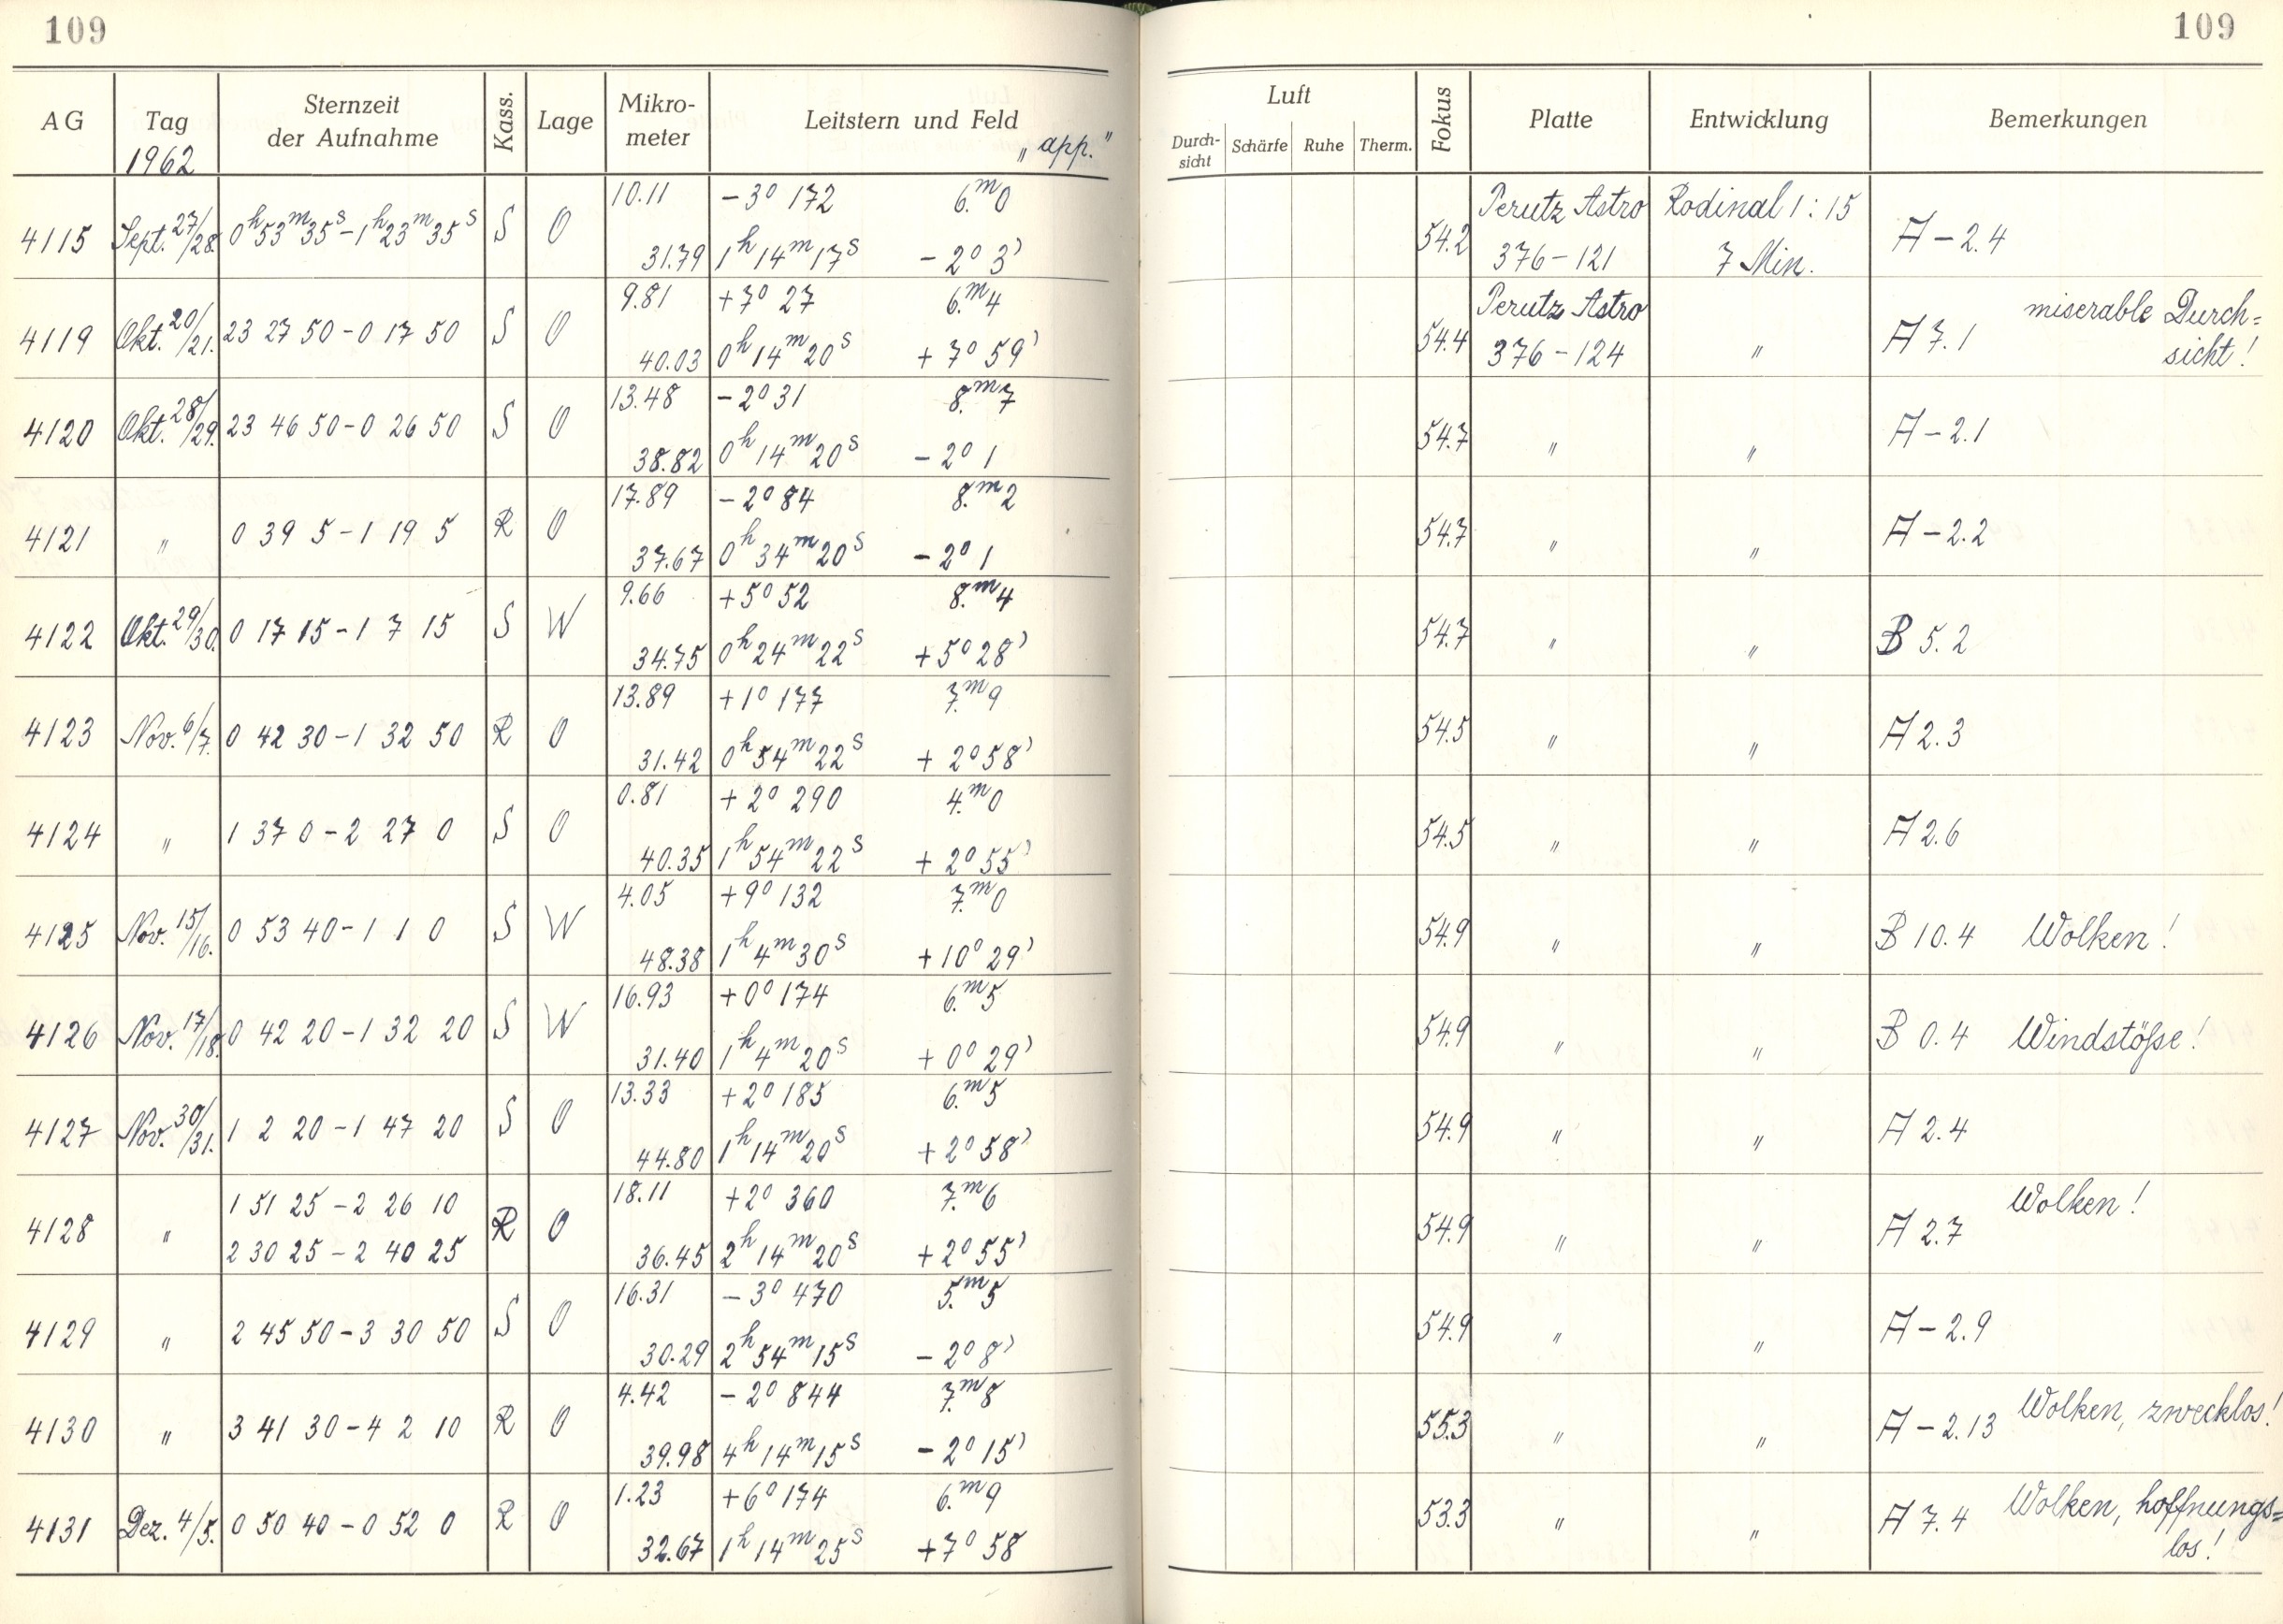 109
109
AG Tag 1962 Sternzeit der Aufnahme Kass. Lage Mikro-meter Leitstern und Feld „app.“ Luft Durch-sicht Schärfe Ruhe Therm. Fokus Platte Entwicklung Bemerkungen
10.11 −3° 172 6.ᵐ0 Perutz Astro Rodinal 1:15
4115 Sept. 27/28. 0ʰ53ᵐ35ˢ−1ʰ23ᵐ35ˢ S O 54.2 A −2.4
31.79 1ʰ14ᵐ17ˢ −2° 3' 376−121 7 Min.
9.81 +7° 27 6.ᵐ4 Perutz Astro miserable Durch=
4119 Okt. 20/21. 23 27 50−0 17 50 S O 54.4 A 7.1
40.03 0ʰ14ᵐ20ˢ +7° 59' 376−124 " sicht!
13.48 −2° 31 8.ᵐ7
4120 Okt. 28/29. 23 46 50−0 26 50 S O 54.7 " " A −2.1
38.82 0ʰ14ᵐ20ˢ −2° 1
17.89 −2° 84 8.ᵐ2
4121 " 0 39 5−1 19 5 R O 54.7 " " A −2.2
37.67 0ʰ34ᵐ20ˢ −2° 1
9.66 +5° 52 8.ᵐ4
4122 Okt. 29/30. 0 17 15−1 7 15 S W 54.7 " " B 5.2
34.75 0ʰ24ᵐ22ˢ +5° 28'
13.89 +1° 177 7.ᵐ9
4123 Nov. 6/7. 0 42 30−1 32 50 R O 54.5 " " A 2.3
31.42 0ʰ54ᵐ22ˢ +2° 58'
0.81 +2° 290 4.ᵐ0
4124 " 1 37 0−2 27 0 S O 54.5 " " A 2.6
40.35 1ʰ54ᵐ22ˢ +2° 55'
4.05 +9° 132 7.ᵐ0
4125 Nov. 15/16. 0 53 40−1 1 0 S W 54.9 " " B 10.4 Wolken!
48.38 1ʰ4ᵐ30ˢ +10° 29'
16.93 +0° 174 6.ᵐ5
4126 Nov. 17/18. 0 42 20−1 32 20 S W 54.9 " " B 0.4 Windstöße!
31.40 1ʰ4ᵐ20ˢ +0° 29'
13.33 +2° 185 6.ᵐ5
4127 Nov. 30/31. 1 2 20−1 47 20 S O 54.9 " " A 2.4
44.80 1ʰ14ᵐ20ˢ +2° 58'
1 51 25−2 26 10 18.11 +2° 360 7.ᵐ6 Wolken!
4128 " R O 54.9 " " A 2.7
2 30 25−2 40 25 36.45 2ʰ14ᵐ20ˢ +2° 55'
16.31 −3° 470 5.ᵐ5
4129 " 2 45 50−3 30 50 S O 54.9 " " A −2.9
30.29 2ʰ54ᵐ15ˢ −2° 8'
4.42 −2° 844 7.ᵐ8 Wolken, zwecklos!
4130 " 3 41 30−4 2 10 R O 55.3 " " A −2.13
39.98 4ʰ14ᵐ15ˢ −2° 15'
1.23 +6° 174 6.ᵐ9 Wolken, hoffnungs=
4131 Dez. 4/5. 0 50 40−0 52 0 R O 53.3 " " A 7.4
32.67 1ʰ14ᵐ25ˢ +7° 58 los!